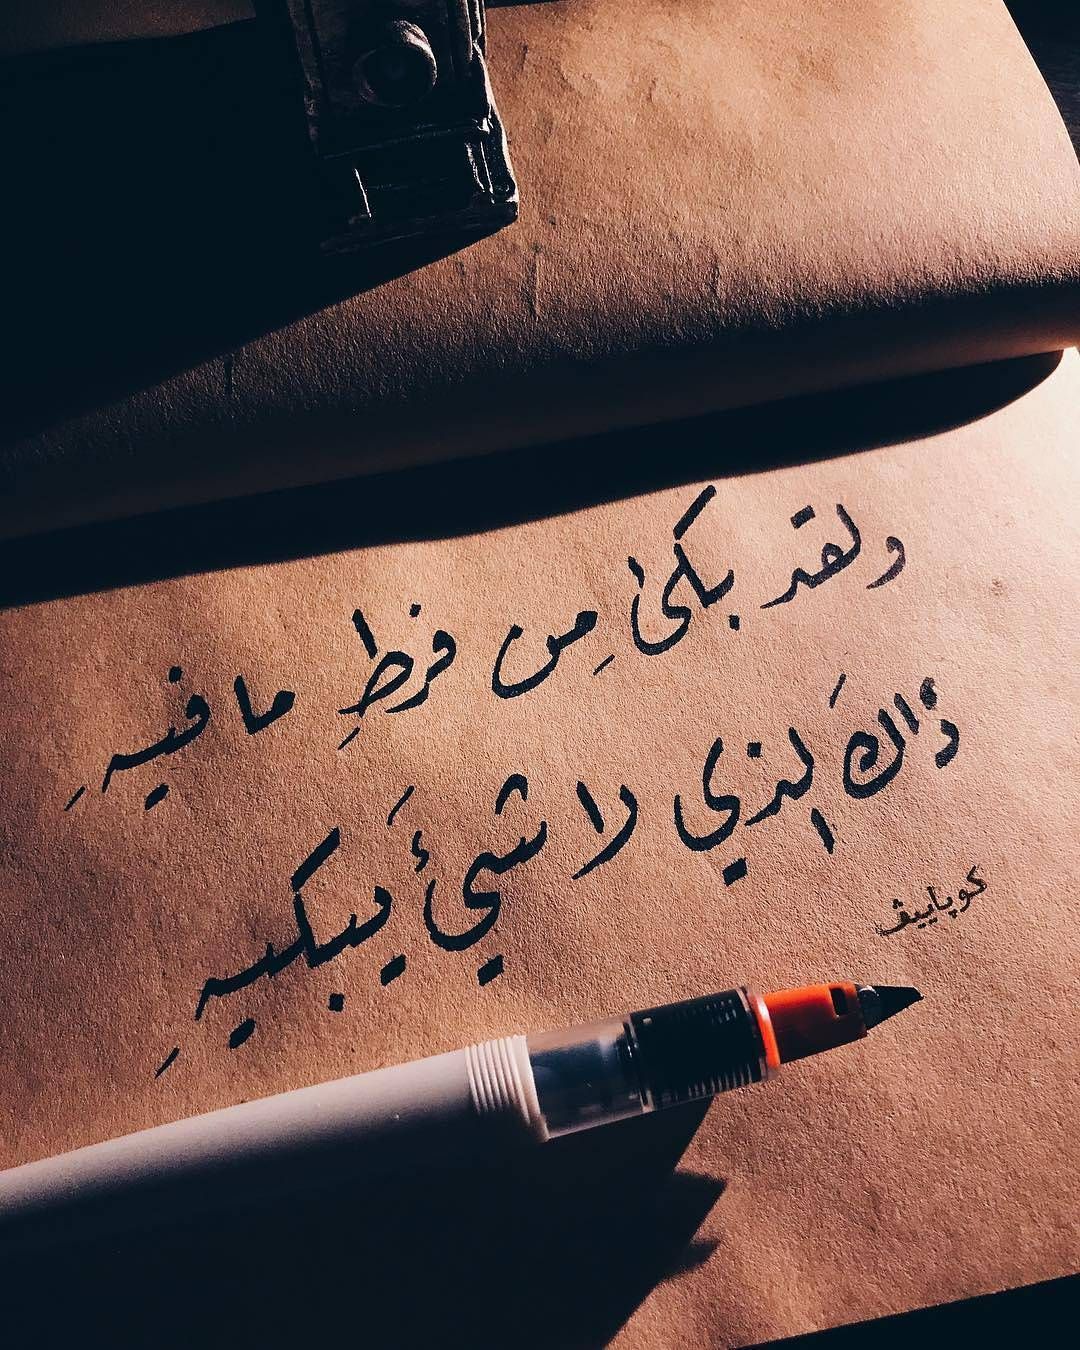 ولقد بكىٰ مِن فرطِ ما فيهِ
ذاكَ الذي لا شيئَ يبكيهِ
كوپاييڤ